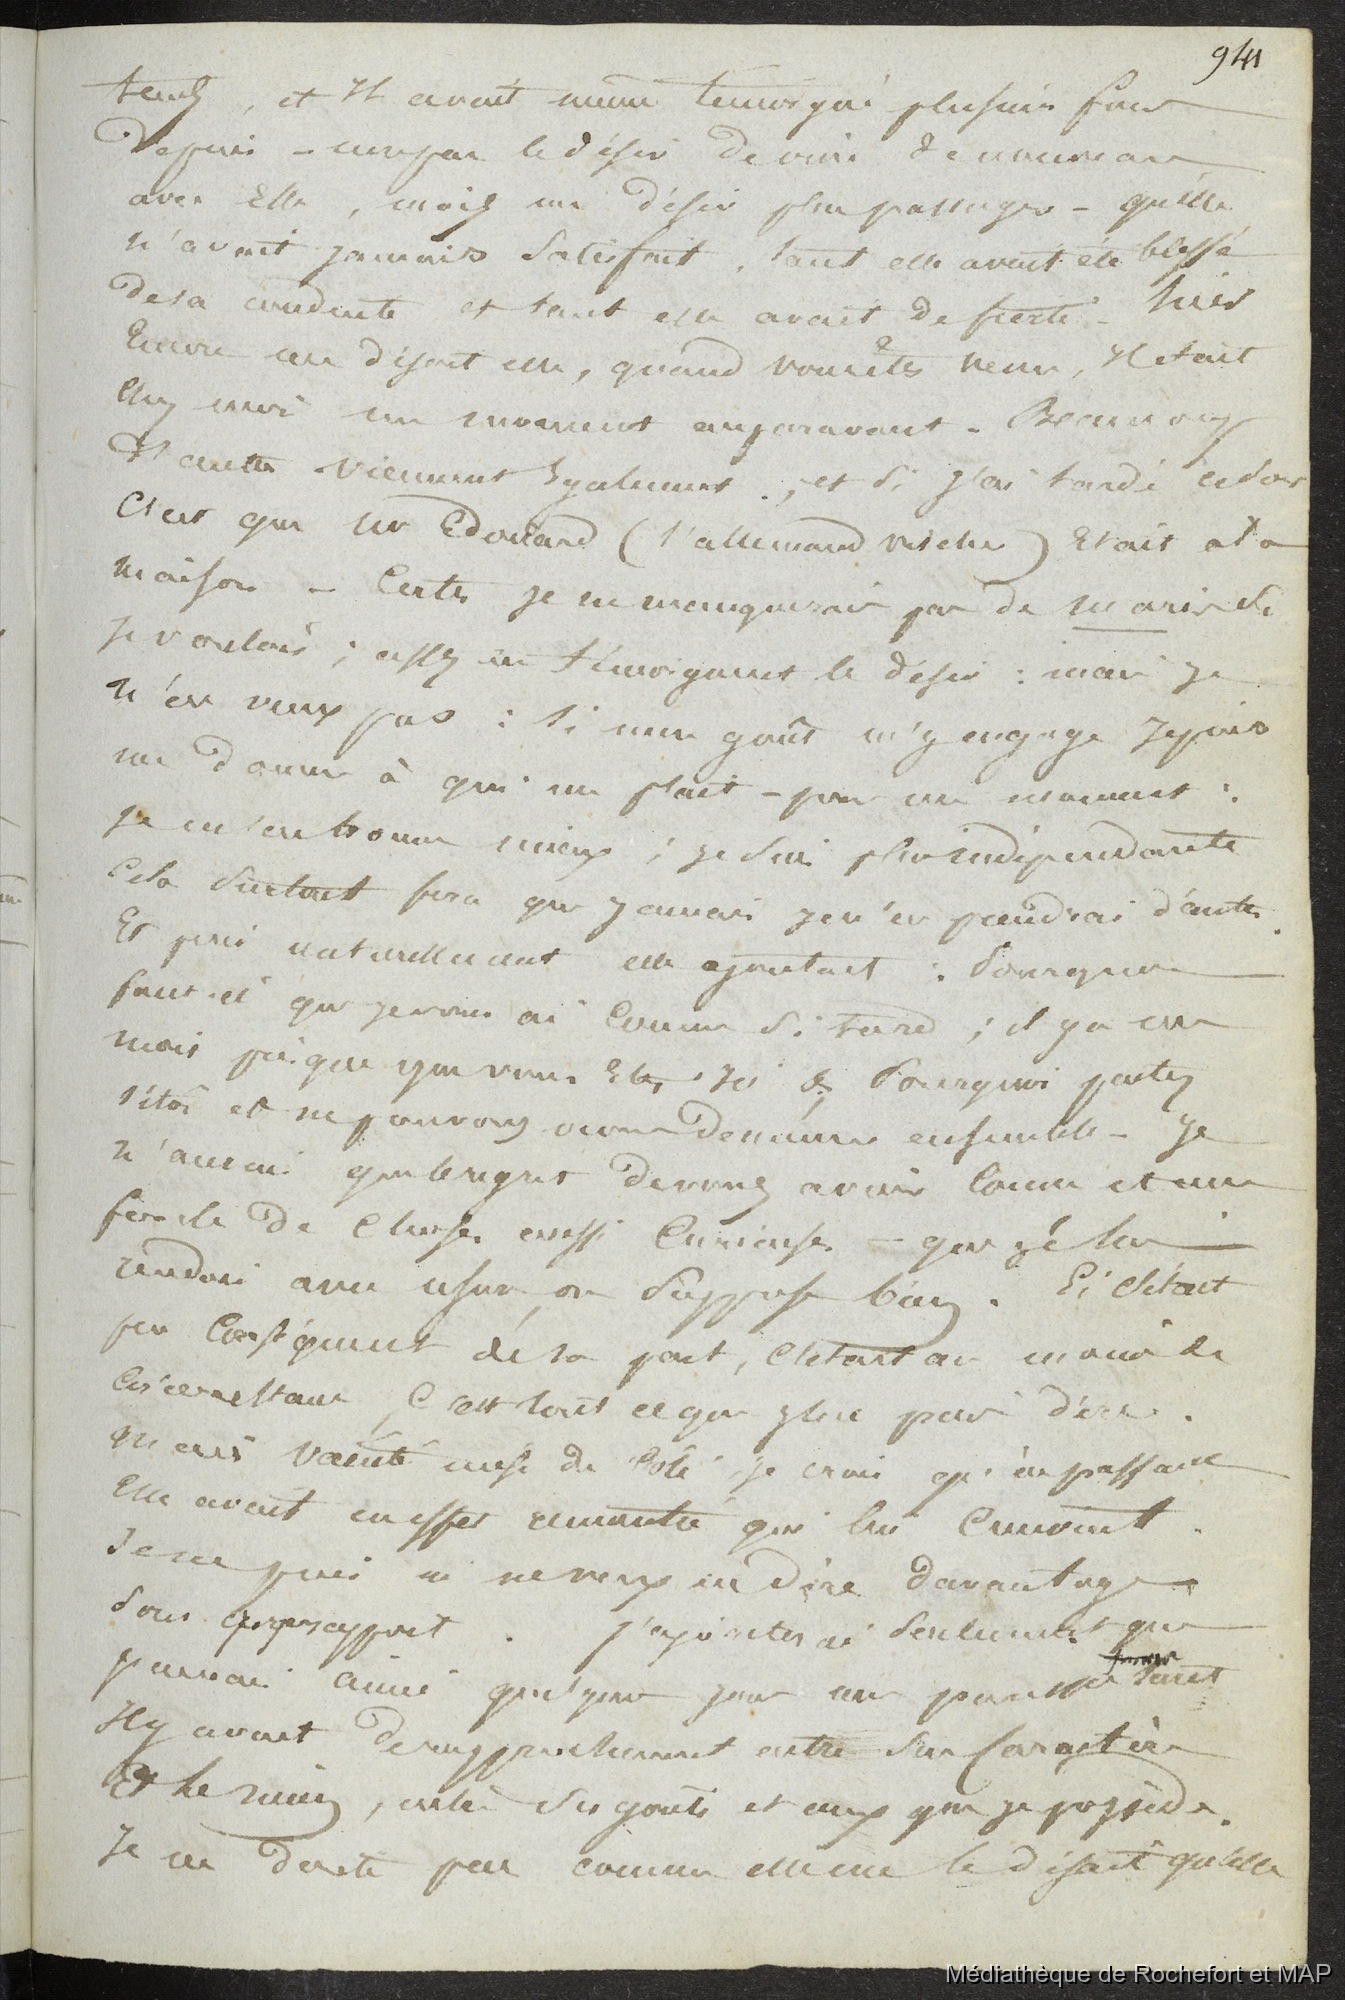 941
temps, et Il avait même témoigné plusieurs fois
Depuis - le désir de vivre de nouveau
avec Elle, mais un désir plus passager - qu'elle
n'avait jamais satisfait, tant elle avait été blessé
de sa conduite et tant elle avait de fierté - hier
Encore me disait elle, quand vous êtes venu, Il etait
chez moi un moment auparavant -
D'autres viennent Egalement, et si j'ai tardé ce soir
C'est que Mr Edouard (l'allemand ) Etait à la
maison - Certes je ne manquerais pas de maris si
Je voulais ; assez en témoignent le désir : mais je
n'en veux pas : si mon goût m'y engage Je puis
me donner à qui me plait - pour un moment :
Je m'en trouve mieux ; je suis plus indépendante
Cela surtout fera que jamais je n'en prendrai d'autres.
Et puis naturellement elle ajoutait : Pourquoi
faut-il que je vous ai connu si tard ; il y a un
mois presque que vous Etes Ici & Pourquoi partez
sitôt et ne pouvons nous demeurer ensemble - Je
n'aurai que le regret de vous avoir connu et une
foule de choses aussi Curieuses - que je lui
rendais avec usure, on suppose bien. Si C'était
par Conséquent de sa part, C'était au moins de
Circonstance, C'est tout ce que je lui puis dire.
Mais vanité mise de Côté je crois qu'en passant
Elle avait en effet rencontré qui lui Convint.
Je ne puis ni ne veux en dire davantage
Sous ce rapport. J'ajouterai seulement que
j'aurais aimé quelque jour une tant
Il y avait de rapprochement entre Son Caractère
Et le mien, entre ses goûts et ceux que je possède.
Je ne doute pas comme elle me le disait qu'elle
Médiathèque de Rochefort et MAP